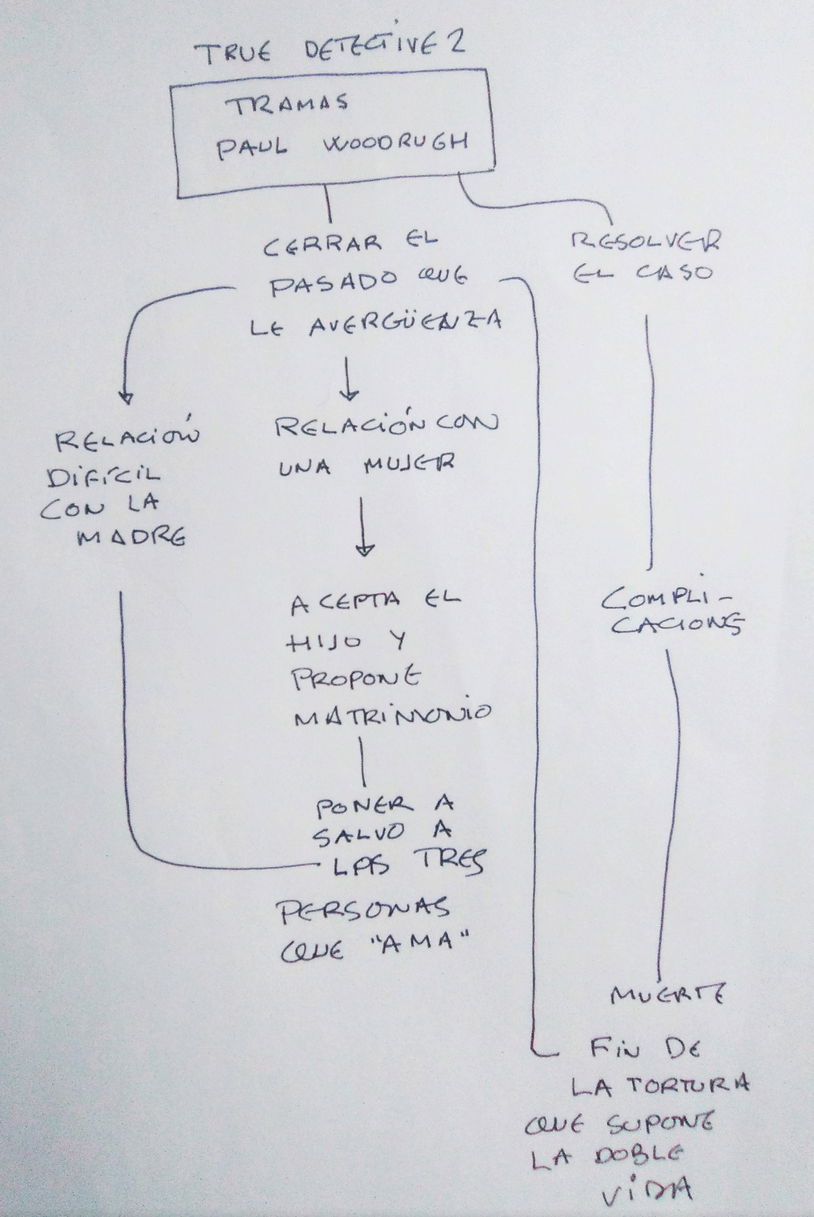 TRUE DETECTIVE 2
TRAMAS
PAUL WOODRUGH
CERRAR EL
PASADO QUE
LE AVERGÜENZA
RESOLVER
EL CASO
RELACIÓN
DIFÍCIL
CON LA
MADRE
RELACIÓN CON
UNA MUJER
ACEPTA EL
HIJO Y
PROPONE
MATRIMONIO
PONER A
SALVO A
LAS TRES
PERSONAS
QUE "AMA"
COMPLI-
CACIONS
MUERTE
FIN DE
LA TORTURA
QUE SUPONE
LA DOBLE
VIDA